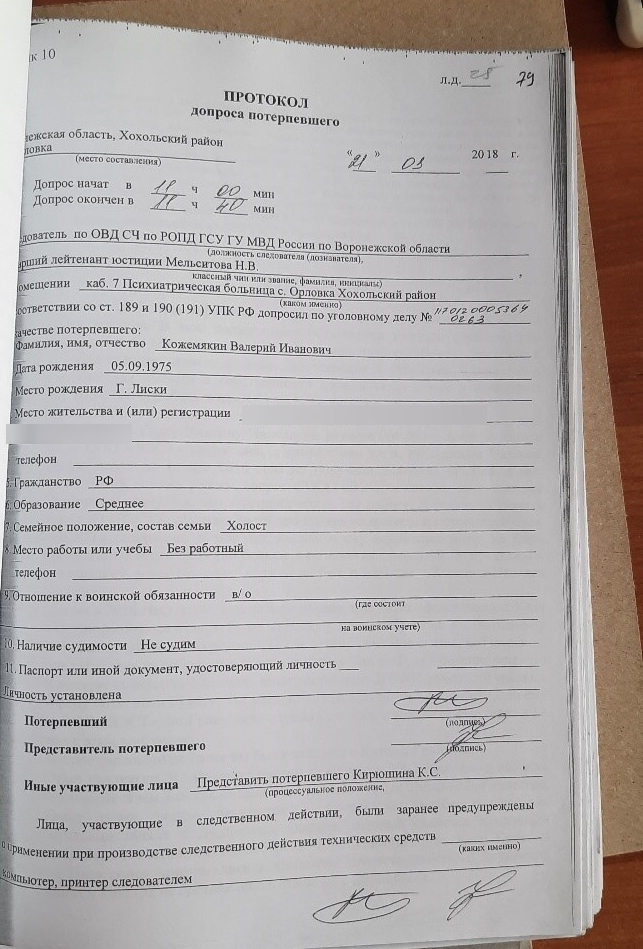 к 10
л.д. 79
ПРОТОКОЛ
допроса потерпевшего
ежская область, Хохольский район
ловка
(место составления)
« 21 » 03 2018 г.
Допрос начат в 11 ч 00 мин
Допрос окончен в 11 ч 40 мин
дователь по ОВД СЧ по РОПД ГСУ ГУ МВД России по Воронежской области
(должность следователя (дознавателя),
рший лейтенант юстиции Мельситова Н.В.
классный чин или звание, фамилия, инициалы)
омещении каб. 7 Психиатрическая больница с. Орловка Хохольский район
(каком именно)
оответствии со ст. 189 и 190 (191) УПК РФ допросил по уголовному делу № 1170120005364
0263
ачестве потерпевшего:
Фамилия, имя, отчество Кожемякин Валерий Иванович
Дата рождения 05.09.1975
Место рождения Г. Лиски
Место жительства и (или) регистрации
телефон
5. Гражданство РФ
6. Образование Среднее
7. Семейное положение, состав семьи Холост
8. Место работы или учебы Без работный
телефон
9. Отношение к воинской обязанности в/ о
(где состоит
на воинском учете)
10. Наличие судимости Не судим
11. Паспорт или иной документ, удостоверяющий личность
Личность установлена
Потерпевший
(подпись)
Представитель потерпевшего
(подпись)
Иные участвующие лица Представить потерпевшего Кирюшина К.С.
(процессуальное положение,
Лица, участвующие в следственном действии, были заранее предупреждены
о применении при производстве следственного действия технических средств
(каких именно)
компьютер, принтер следователем